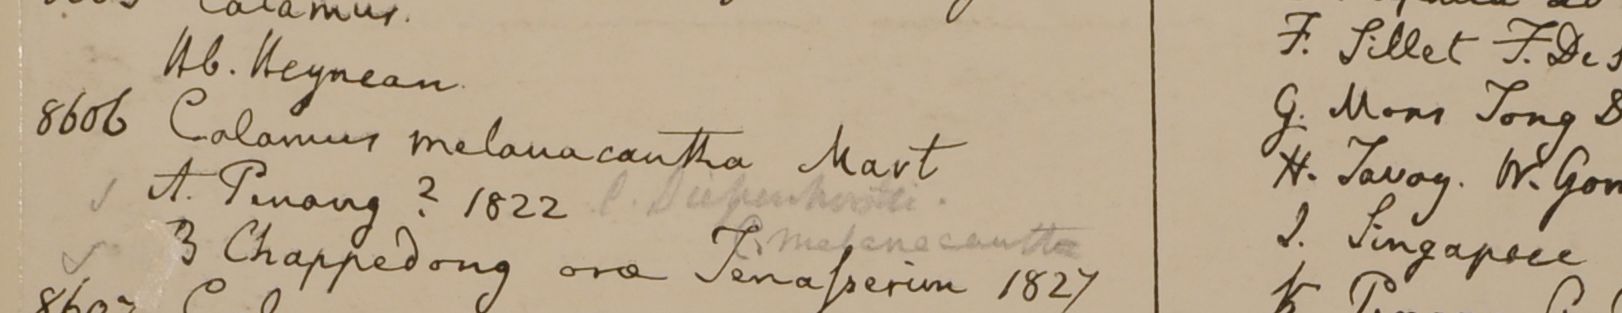 Calamus.
Hb. Heynean.
8606 Calamus melanacantha Mart
A. Pinang ? 1822 C. Diepenhorstii.
C. melanacantha
B Chappedong oræ Tenasserim 1827
8607
F. Sillet F. De S
G. Mons Tong D
H. Tavoy. W. Gom
I. Singapore
K